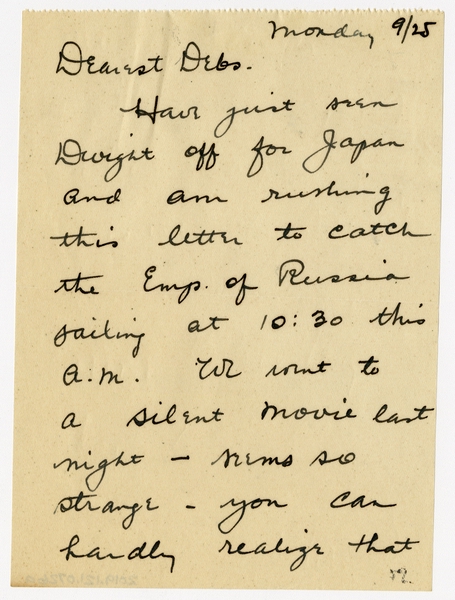 Monday 9/25
Dearest Debs.
Have just seen
Dwight off for Japan
and am rushing
this letter to catch
the Emp. of Russia
sailing at 10:30 this
A.M. We went to
a silent movie last
night - seems so
strange - you can
hardly realize that